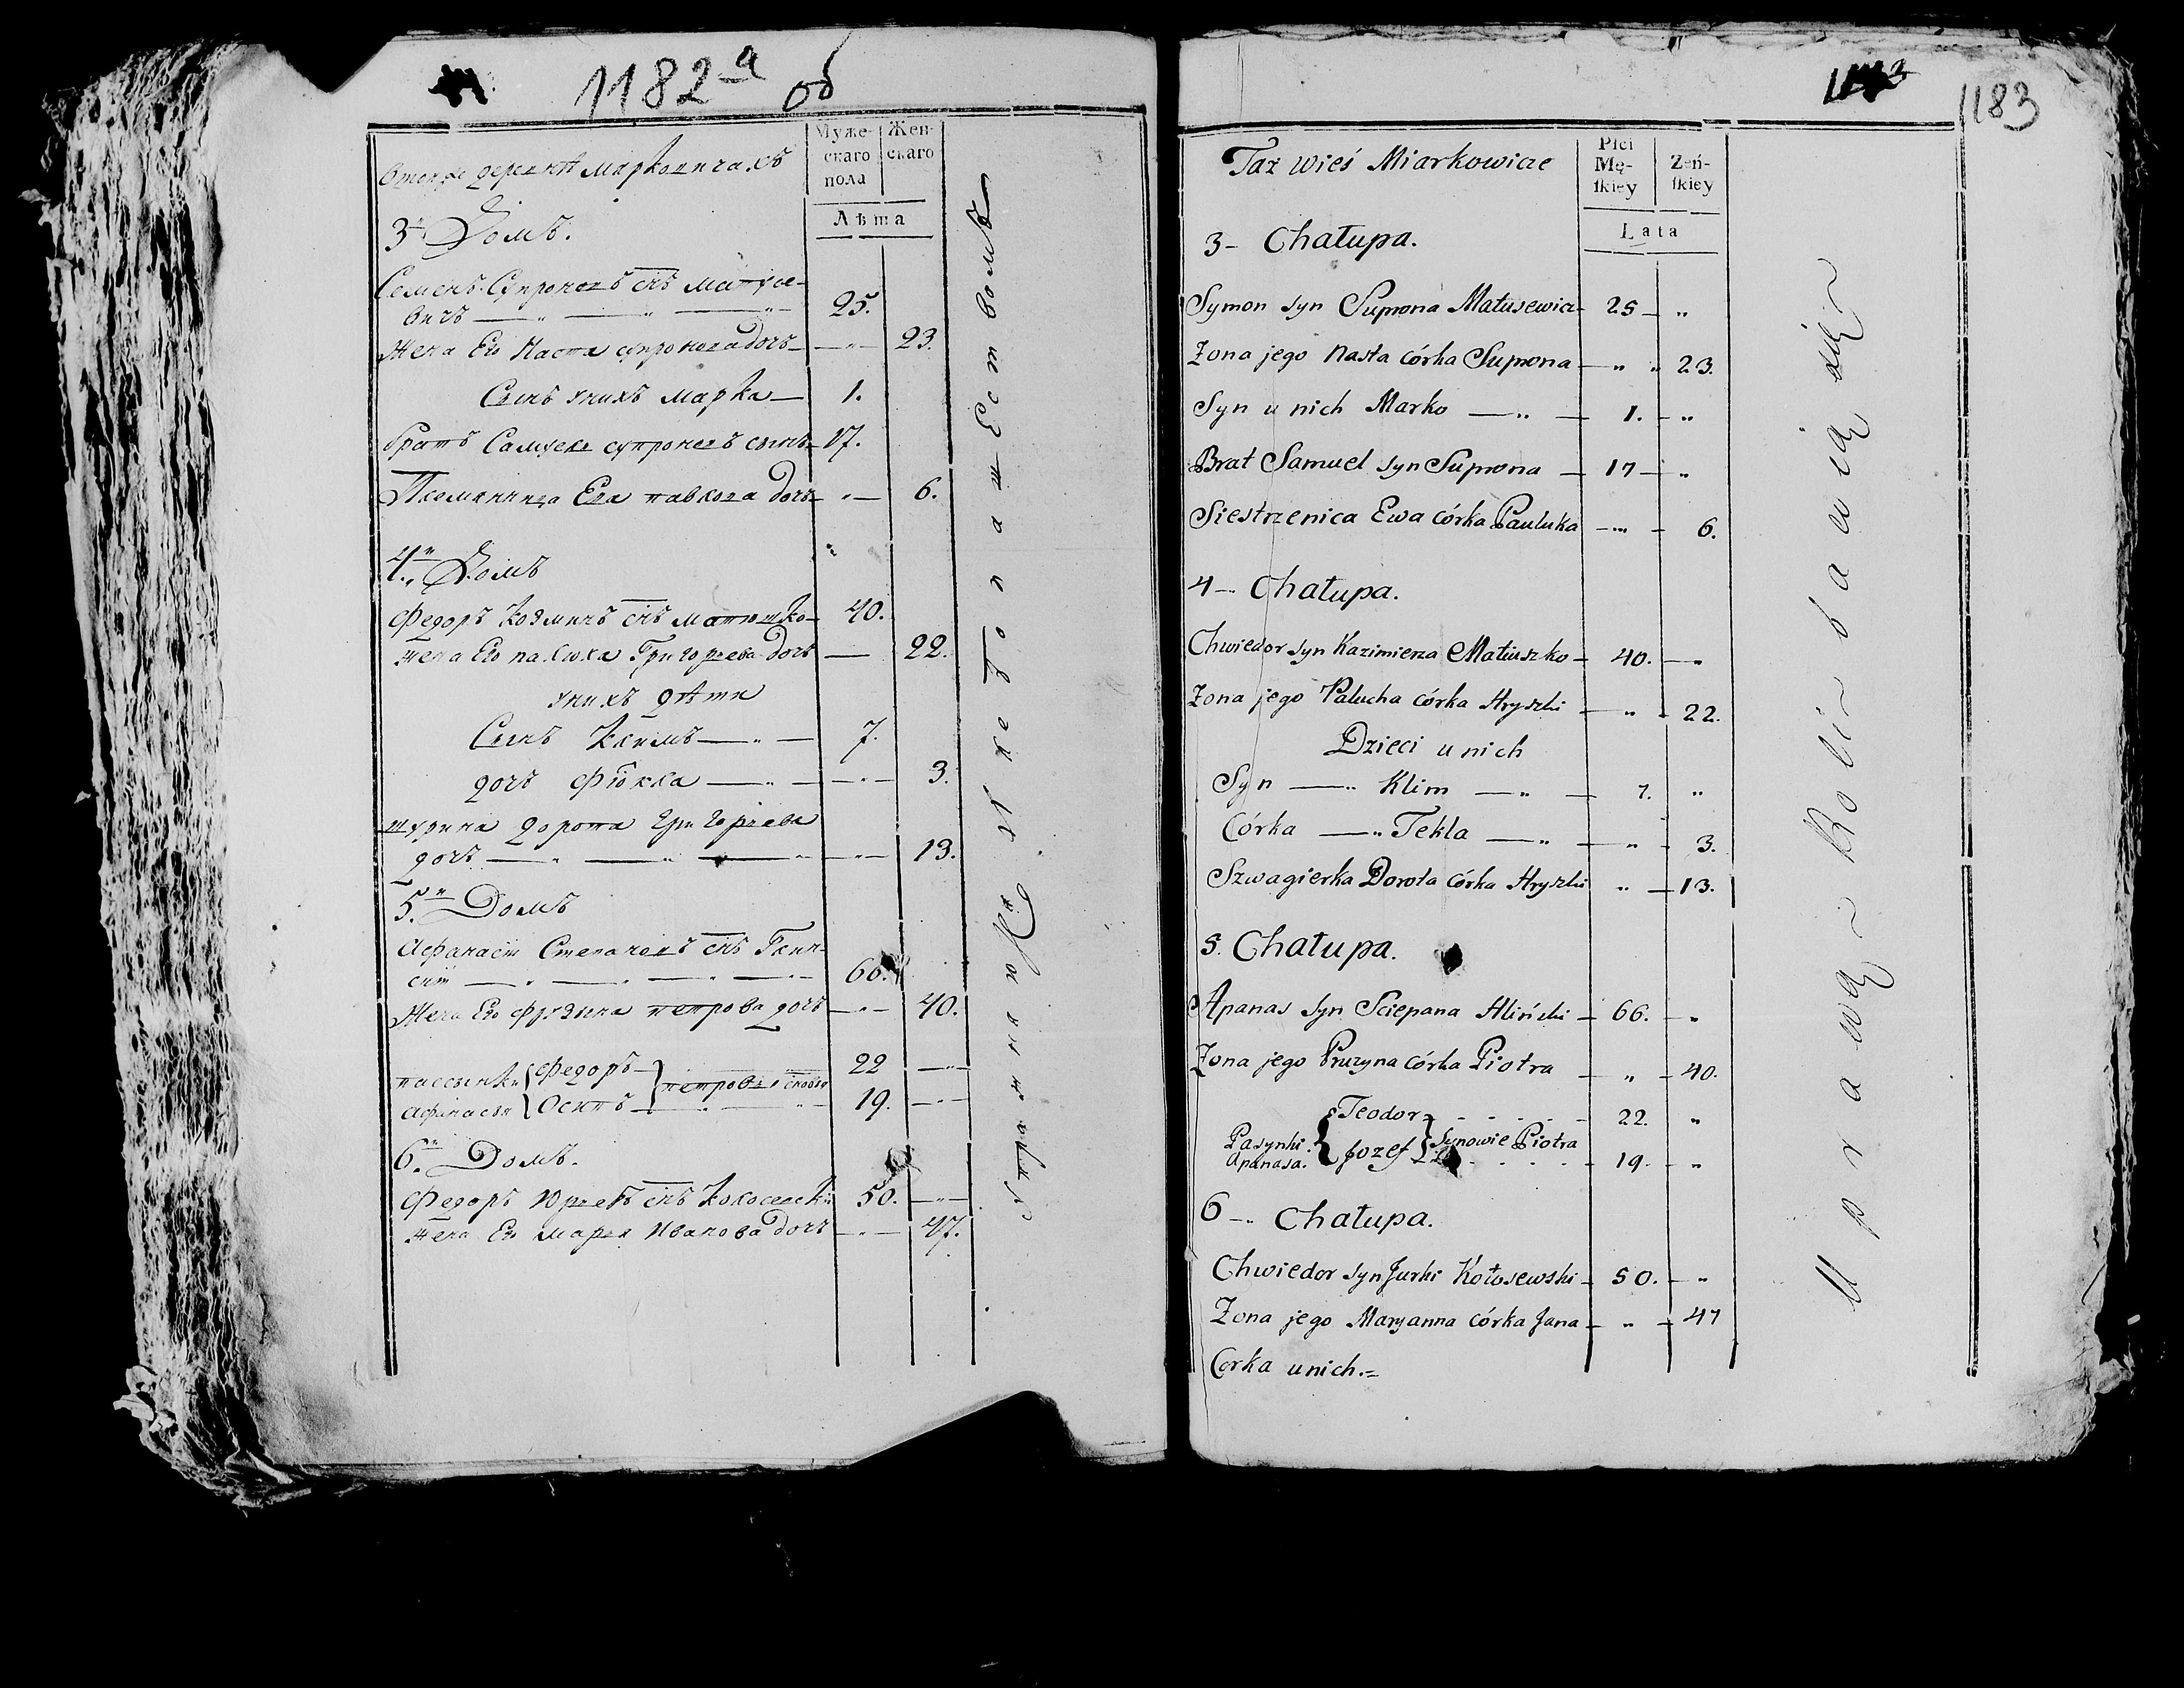 1182а об
Втойже деревнѣ Марковичахъ
Муже-
скаго
пола
Жен-
скаго
Лѣта
3й Домъ.
Семенъ Супроновъ снъ Матусе-
вичъ — 25.
Жена Его Наста супронова дочь — 23.
Сынъ унихъ Марка — 1.
братъ Самуель супроновъ сынъ — 17.
Племянница Ева павлова дочь — 6.
4й Домъ
Федоръ Козмичъ снъ Матюшко — 40.
жена Его палюха Григорьева дочь — 22.
унихъ дѣти
Сынъ Климъ — 7.
дочь Фіокла — 3.
шурина дорота Григорьева
дочь — 13.
5й Домъ
Афанасій Степановъ снъ Глин-
скій — 66.
Жена Его Фрузына петрова дочь — 40.
пасынки Афанасья { Федоръ — 22
Осипъ } петровы сновья — 19.
6й Домъ.
Федоръ Юрьевъ снъ Колосовскій 50.
жена Его Марья Иванова дочь — 47.
Упражняются хлебопашеством
1183
Taż wieś Miarkowicze
Płci
Mę-
ſkiey
Żeń-
ſkiey
Lata
3 - Chałupa.
Symon syn Suprona Matusewicz — 25 — "
Żona jego Nasta córka Suprona — " " 23.
Syn u nich Marko — " — 1. — "
Brat Samuel syn Suprona — 17 — "
Siestrzenica Ewa córka Pauluka — " — 6.
4 - Chałupa.
Chwiedor syn Kazimierza Matiuszko — 40. — "
Żona jego Palucha córka Hryszki — " — 22.
Dzieci u nich
Syn — " Klim — " — 7. "
Córka — " Tekla — " — " — 3.
Szwagierka Dorota córka Hryszki " — 13.
5. Chałupa.
Apanas syn Sciepana Hliński — 66. — "
Żona jego Pruzyna córka Piotra — " — 40.
Pasynki Apanasa. { Teodor - - - - 22. "
Jozef } Synowie Piotra - - - - 19. - "
6 - Chałupa.
Chwiedor syn Jurki Kołosewski — 50. — "
Żona jego Maryanna córka Jana — " — 47
Corka u nich. =
Uprawą Roli bawią się